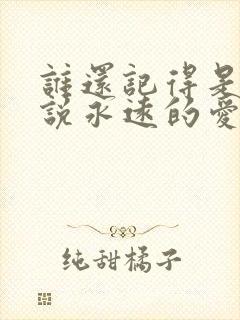 誰還記得是
說永遠的愛
纯甜橘子